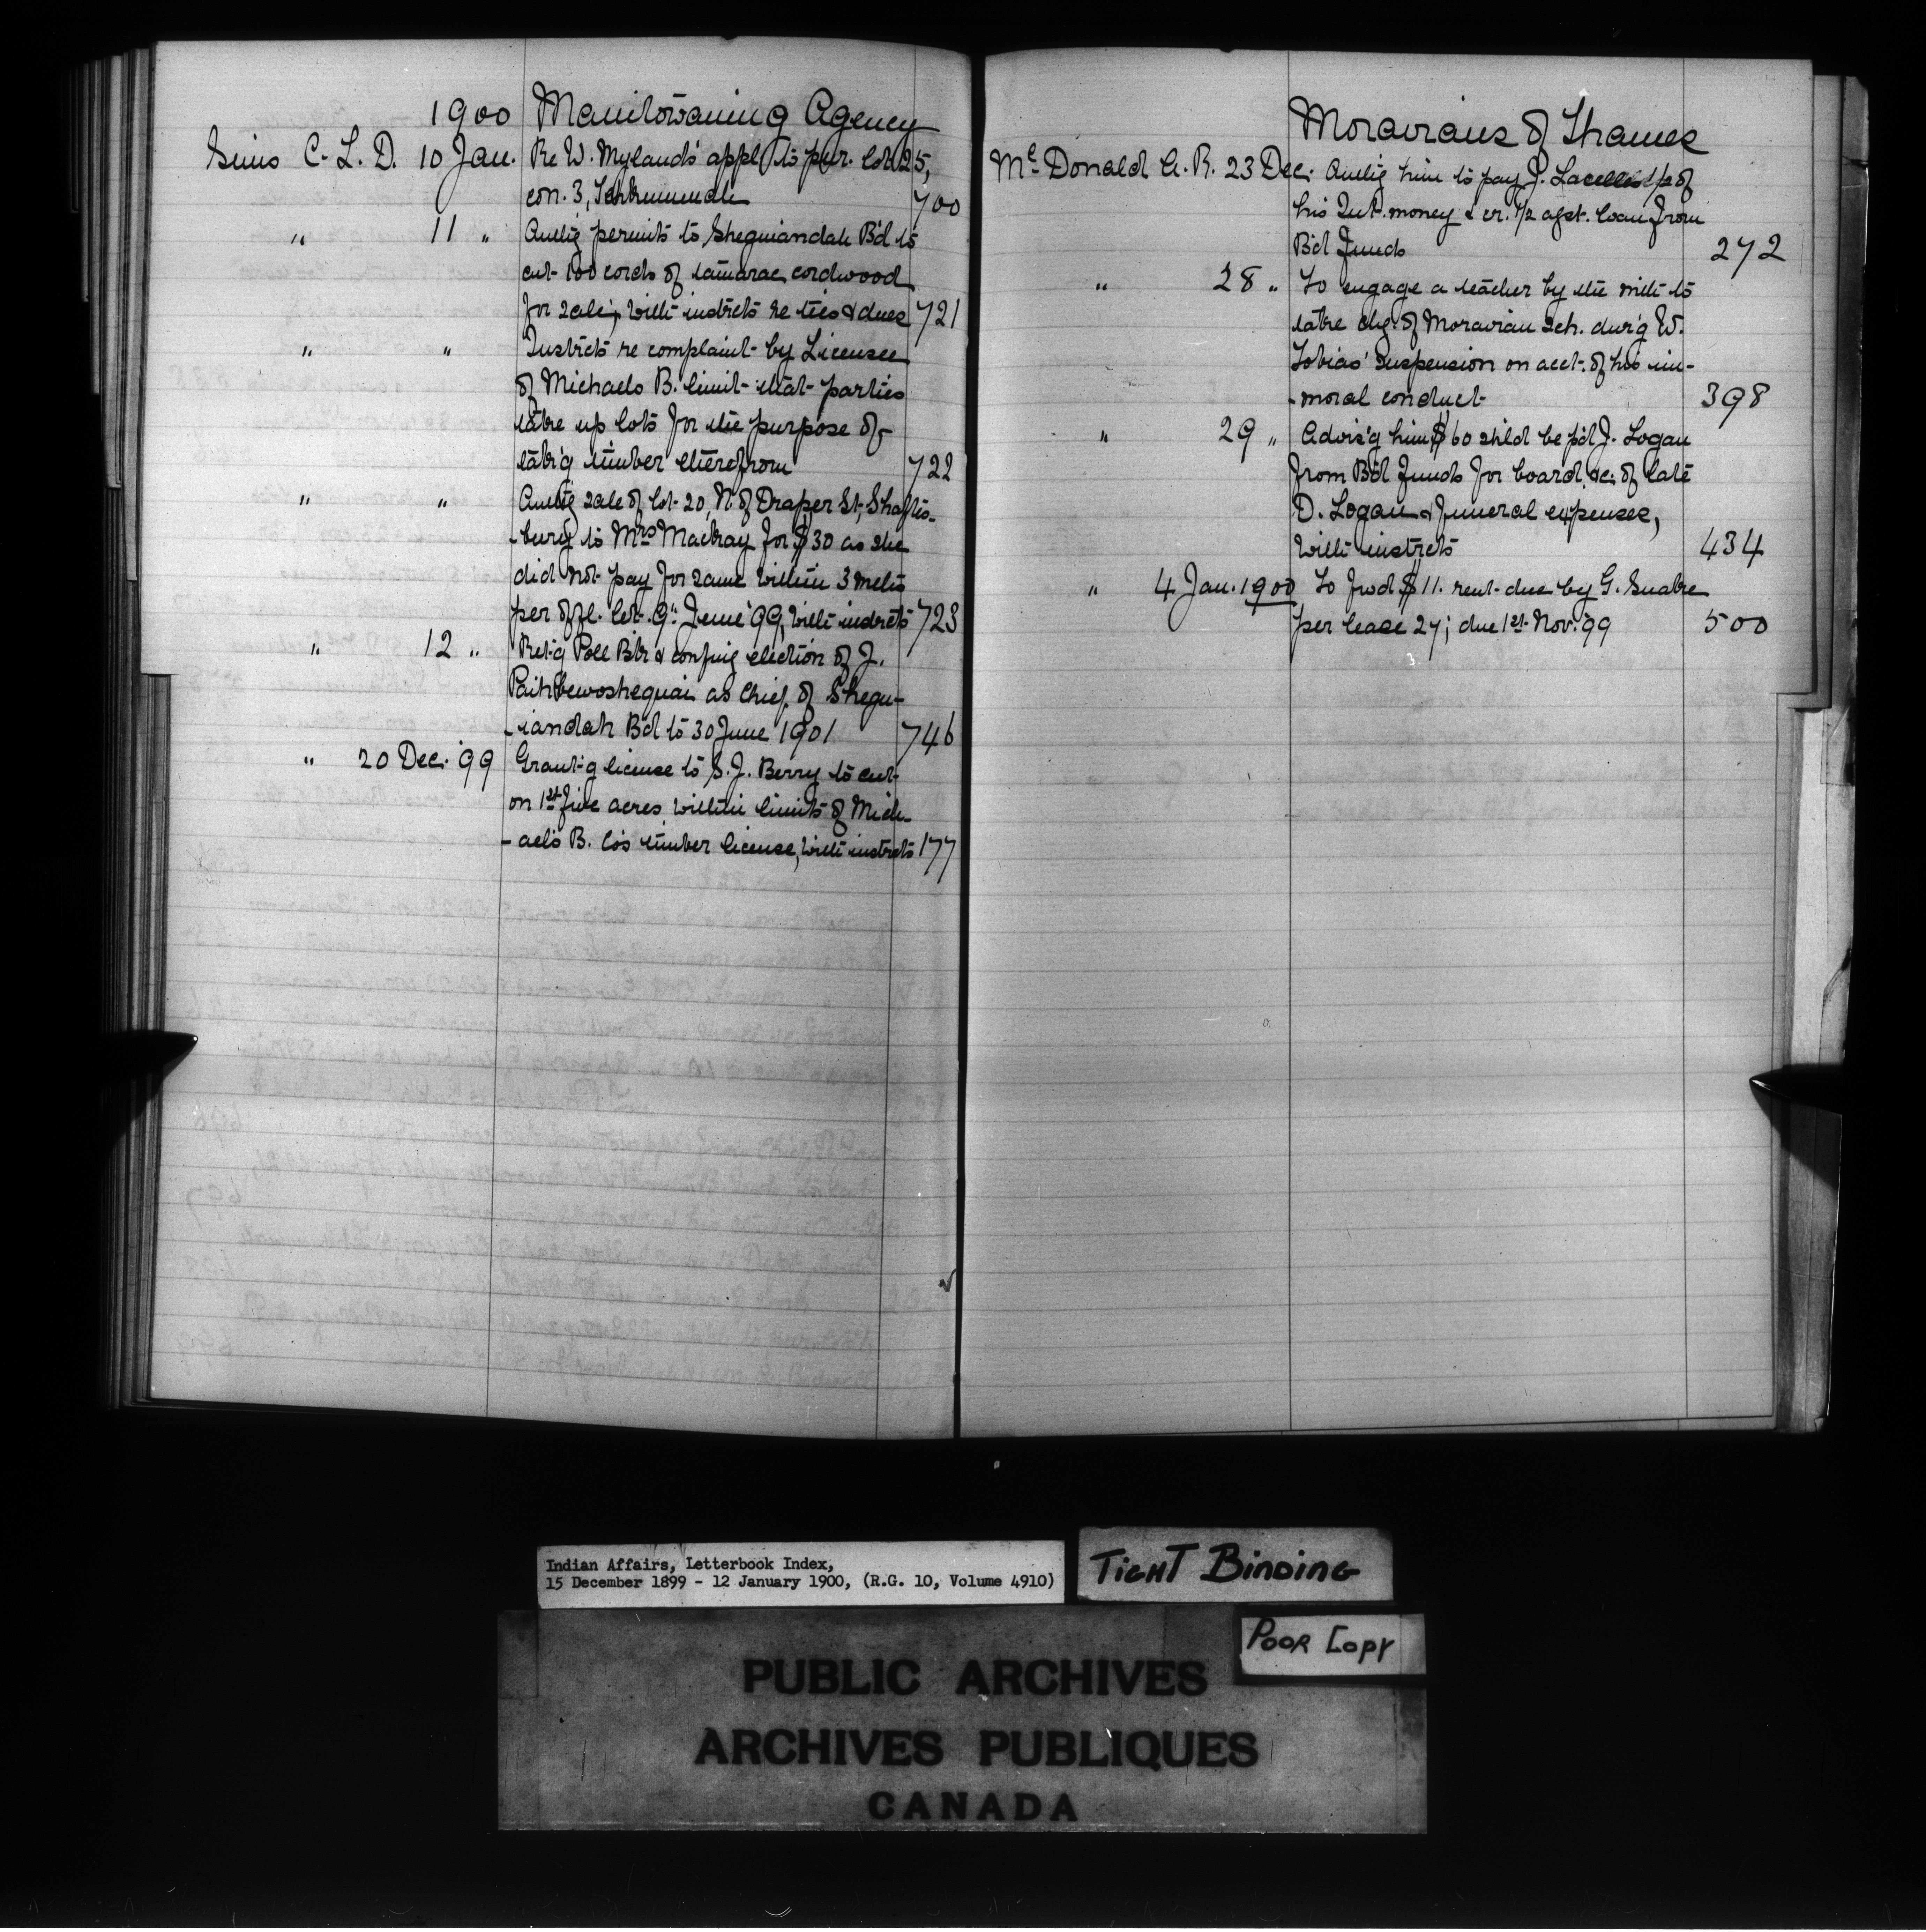 1900 Manitowaning Agency
Sims C. L. D. 10 Jan. Re W. Myland's appl. to pur. lot 25,
con. 3, Tehkummah 700
" 11 " Auth'g permits to Sheguiandah B'd to
cut 100 cords of tamarac cordwood
for sale, with instrcts re ties & dues 721
" " Instrcts re complaint by Licensee
of Michaels B. limit that parties
take up lots for the purpose of
tak'g timber therefrom 722
" " Auth'g sale of lot 20, N. of Draper St, Shaftes-
-bury to Mrs Mackay for $30 as she
did not pay for same within 3 mths
per offl. let. 9" June '99, with instrcts 723
" 12 " Ret'g Poll Bk & conf'g election of J.
as Chief of Shegu-
-iandah B'd to 30 June 1901 746
" 20 Dec. '99 Grant'g license to S. J. Berry to cut
on 1st five acres within limits of Mich-
-ael's B. Co's timber license, with instrcts 177
Moravians of Thames
McDonald A. R. 23 Dec. Auth'g him to pay J. 1/2 of
his Int. money & cr. 1/2 agst. loan from
B'd Funds 272
" 28 " To engage a teacher by the mth to
take chg. of Moravian Sch. dur'g W.
Tobias' suspension on acct. of his im-
-moral conduct 398
" 29 " Advis'g him $60 sh'ld be p'd J. Logan
from B'd Funds for board &c. of late
D. Logan & funeral expenses,
with instrcts 434
" 4 Jan. 1900 To fwd $11. rent due by G. Snake
per lease 27; due 1st Nov. 99 500
Indian Affairs, Letterbook Index,
15 December 1899 - 12 January 1900, (R.G. 10, Volume 4910)
TIGHT BINDING
POOR COPY
PUBLIC ARCHIVES
ARCHIVES PUBLIQUES
CANADA